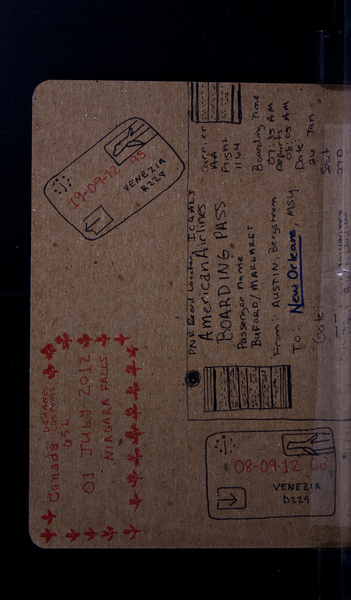 Canada Customs
GSL
01 JULY 2012
NIAGARA FALLS
19-09-12 95
VENEZIA
B229
PNR Record Locator
American Airlines
BOARDING PASS
Passenger Name
BUFORD/MARGARET
From: AUSTIN, Bergstrom
To: New Orleans, MSY
Gate
Carrier
AA
Flight
1164
Boarding Time
07:35 AM
Departs
08:05 AM
Date
24 Jan
Seat
08-09-12
VENEZIA
D229